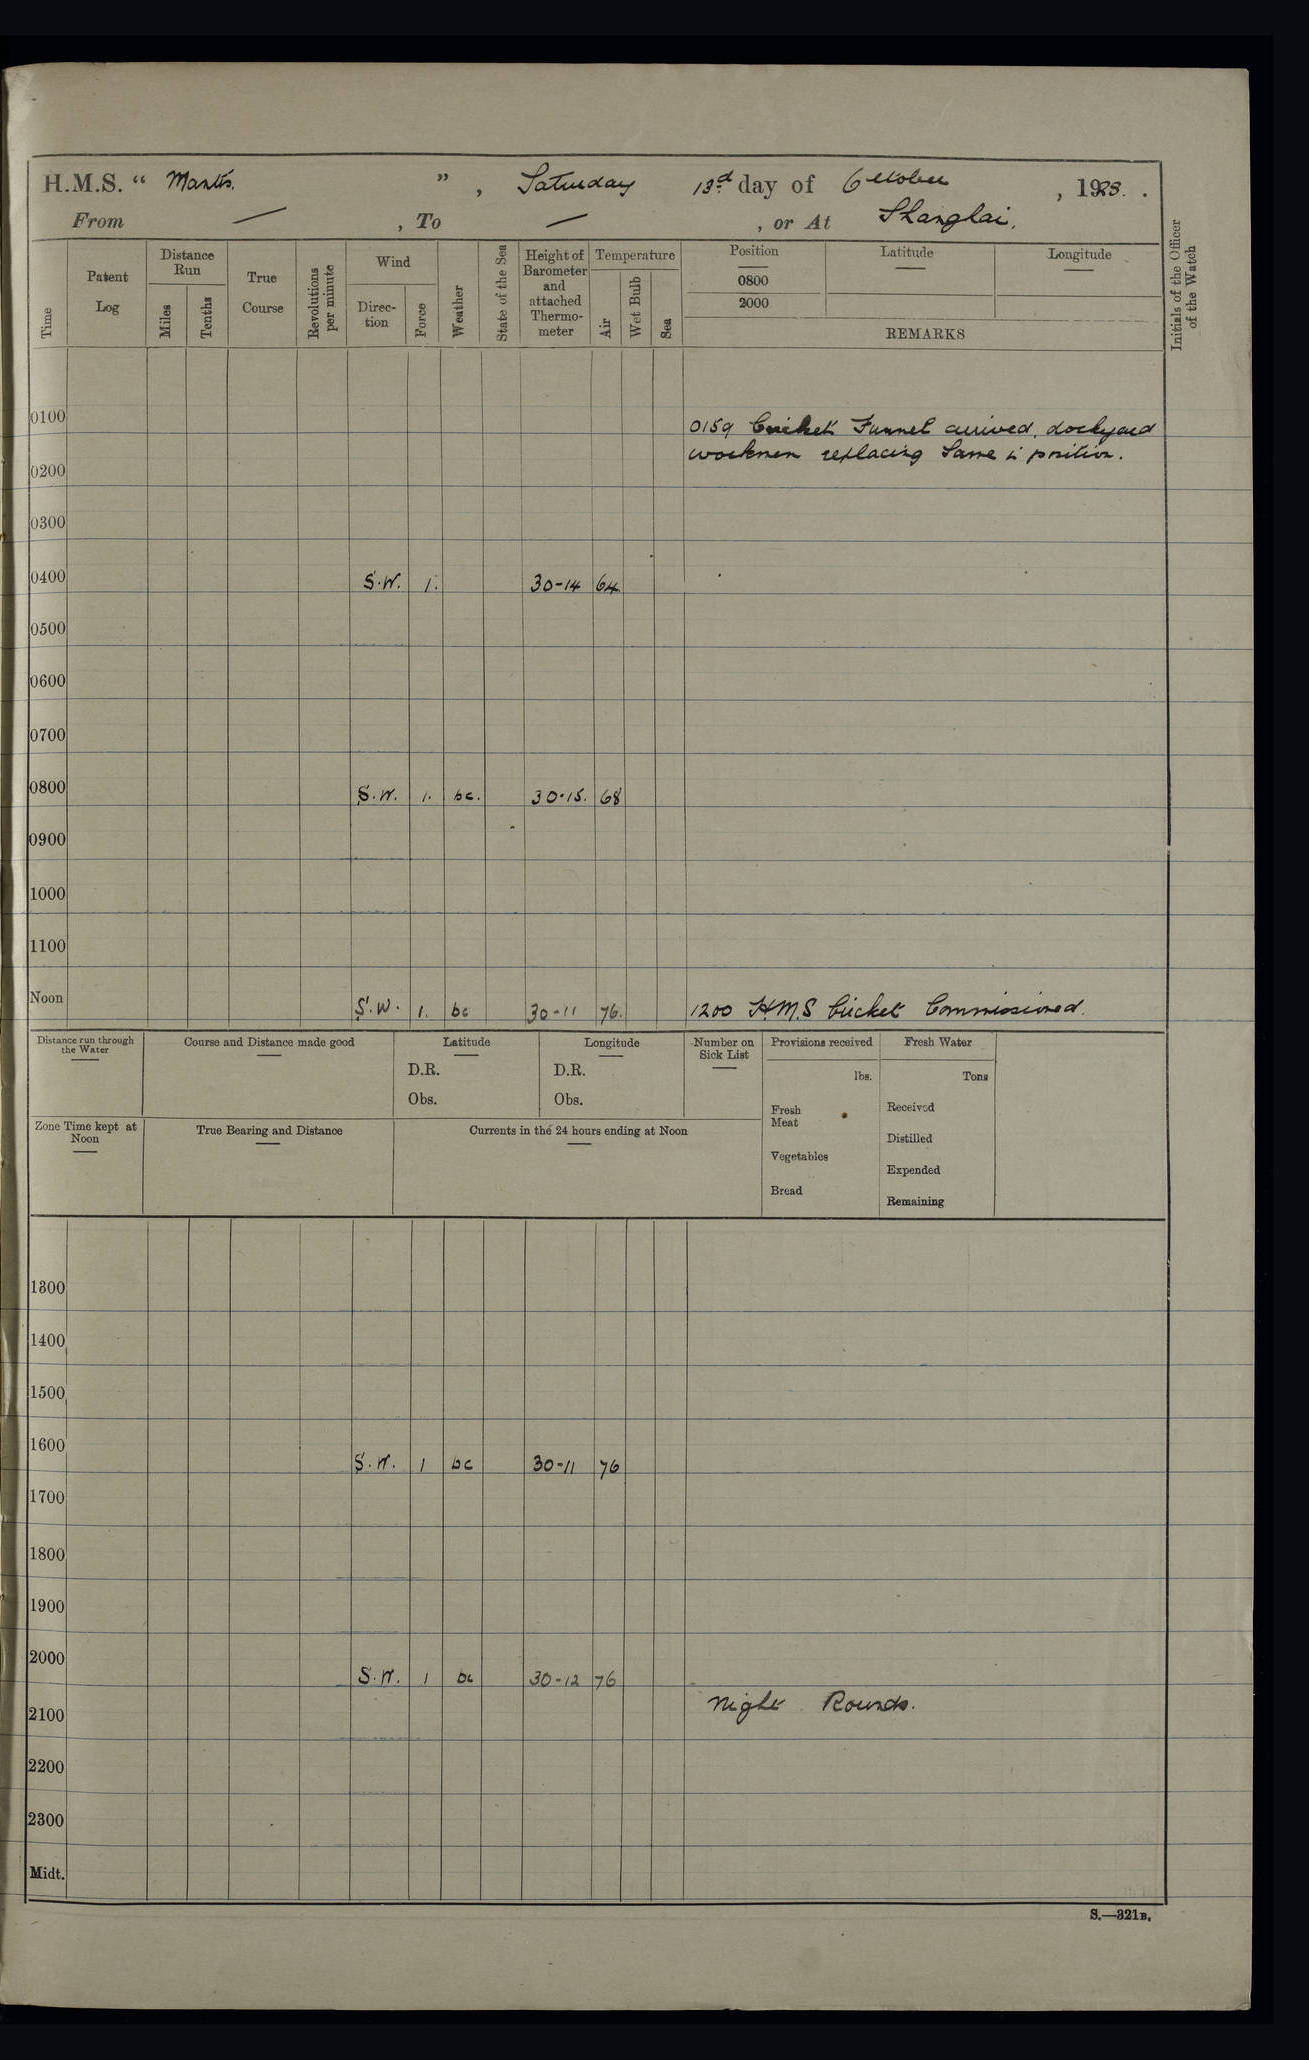 H.M.S. “ Mantis. ” , Saturday 13d day of October , 1923. .
From — , To — , or At Shanghai.
Time
Patent Log
Distance Run
Miles
Tenths
True Course
Revolutions per minute
Wind
Direc- tion
Force
Weather
State of the Sea
Height of Barometer and attached Thermo- meter
Temperature
Air
Wet Bulb
Sea
Position
0800
2000
Latitude
Longitude
REMARKS
Initials of the Officer of the Watch
0100
0159 Cricket Funnel arrived, dockyard
workmen replacing same in position.
0200
0300
0400 S.W. 1. 30-14 64
0500
0600
0700
0800 S.W. 1. bc. 30.15. 68
0900
1000
1100
Noon S.W. 1. bc 30-11 76. 1200 H.M.S Cricket Commissioned.
Distance run through the Water
Course and Distance made good
Latitude
D.R.
Obs.
Longitude
D.R.
Obs.
Number on Sick List
Provisions received
lbs.
Fresh Meat
Vegetables
Bread
Fresh Water
Tons
Received
Distilled
Expended
Remaining
Zone Time kept at Noon
True Bearing and Distance
Currents in the 24 hours ending at Noon
1300
1400
1500
1600 S.W. 1 bc 30-11 76
1700
1800
1900
2000 S.W. 1 bc 30-12 76
Night Rounds.
2100
2200
2300
Midt.
S.—321B.